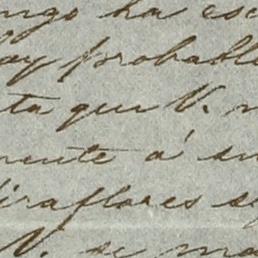 ngo ha esc
ay probable
ta que V. n
mente á su
iraflores s
V. se ma